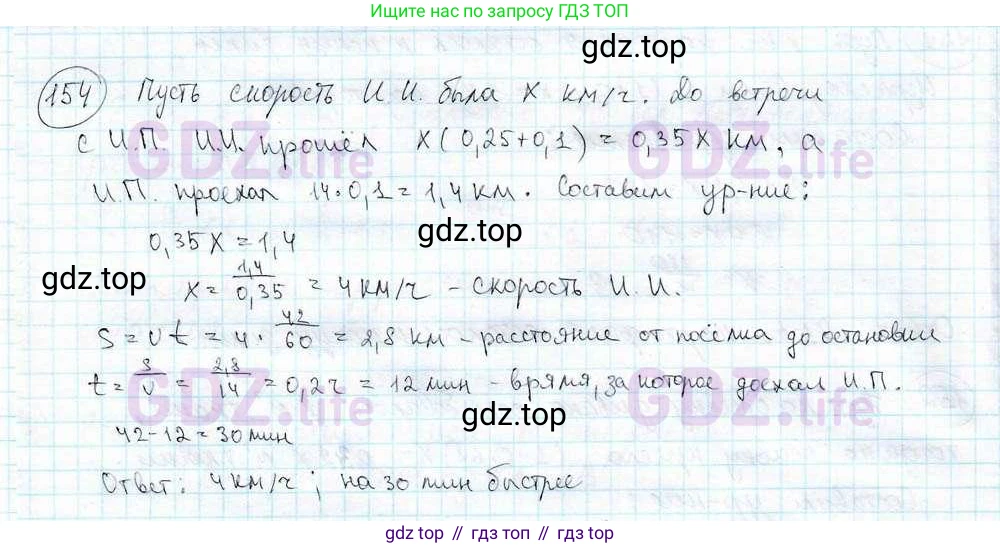 Ищите нас по запросу ГДЗ ТОП
gdz.top
154 Пусть скорость И.И. была x км/ч. До встречи
с И.П. И.И. прошёл x(0,25+0,1)=0,35x км, а
И.П. проехал 14·0,1=1,4 км. Составим ур-ние:
0,35x=1,4
gdz.top
gdz.top
x=1,4/0,35=4км/ч - скорость И.И.
S=vt=4·42/60=2,8 км - расстояние от посёлка до остановки
t=S/v=2,8/14=0,2ч=12мин - врямя, за которое доехал И.П.
GDZ.life
GDZ.life
gdz.top
42-12=30мин
Ответ: 4км/ч; на 30 мин быстрее
gdz.top // гдз топ // gdz top // гдз.топ